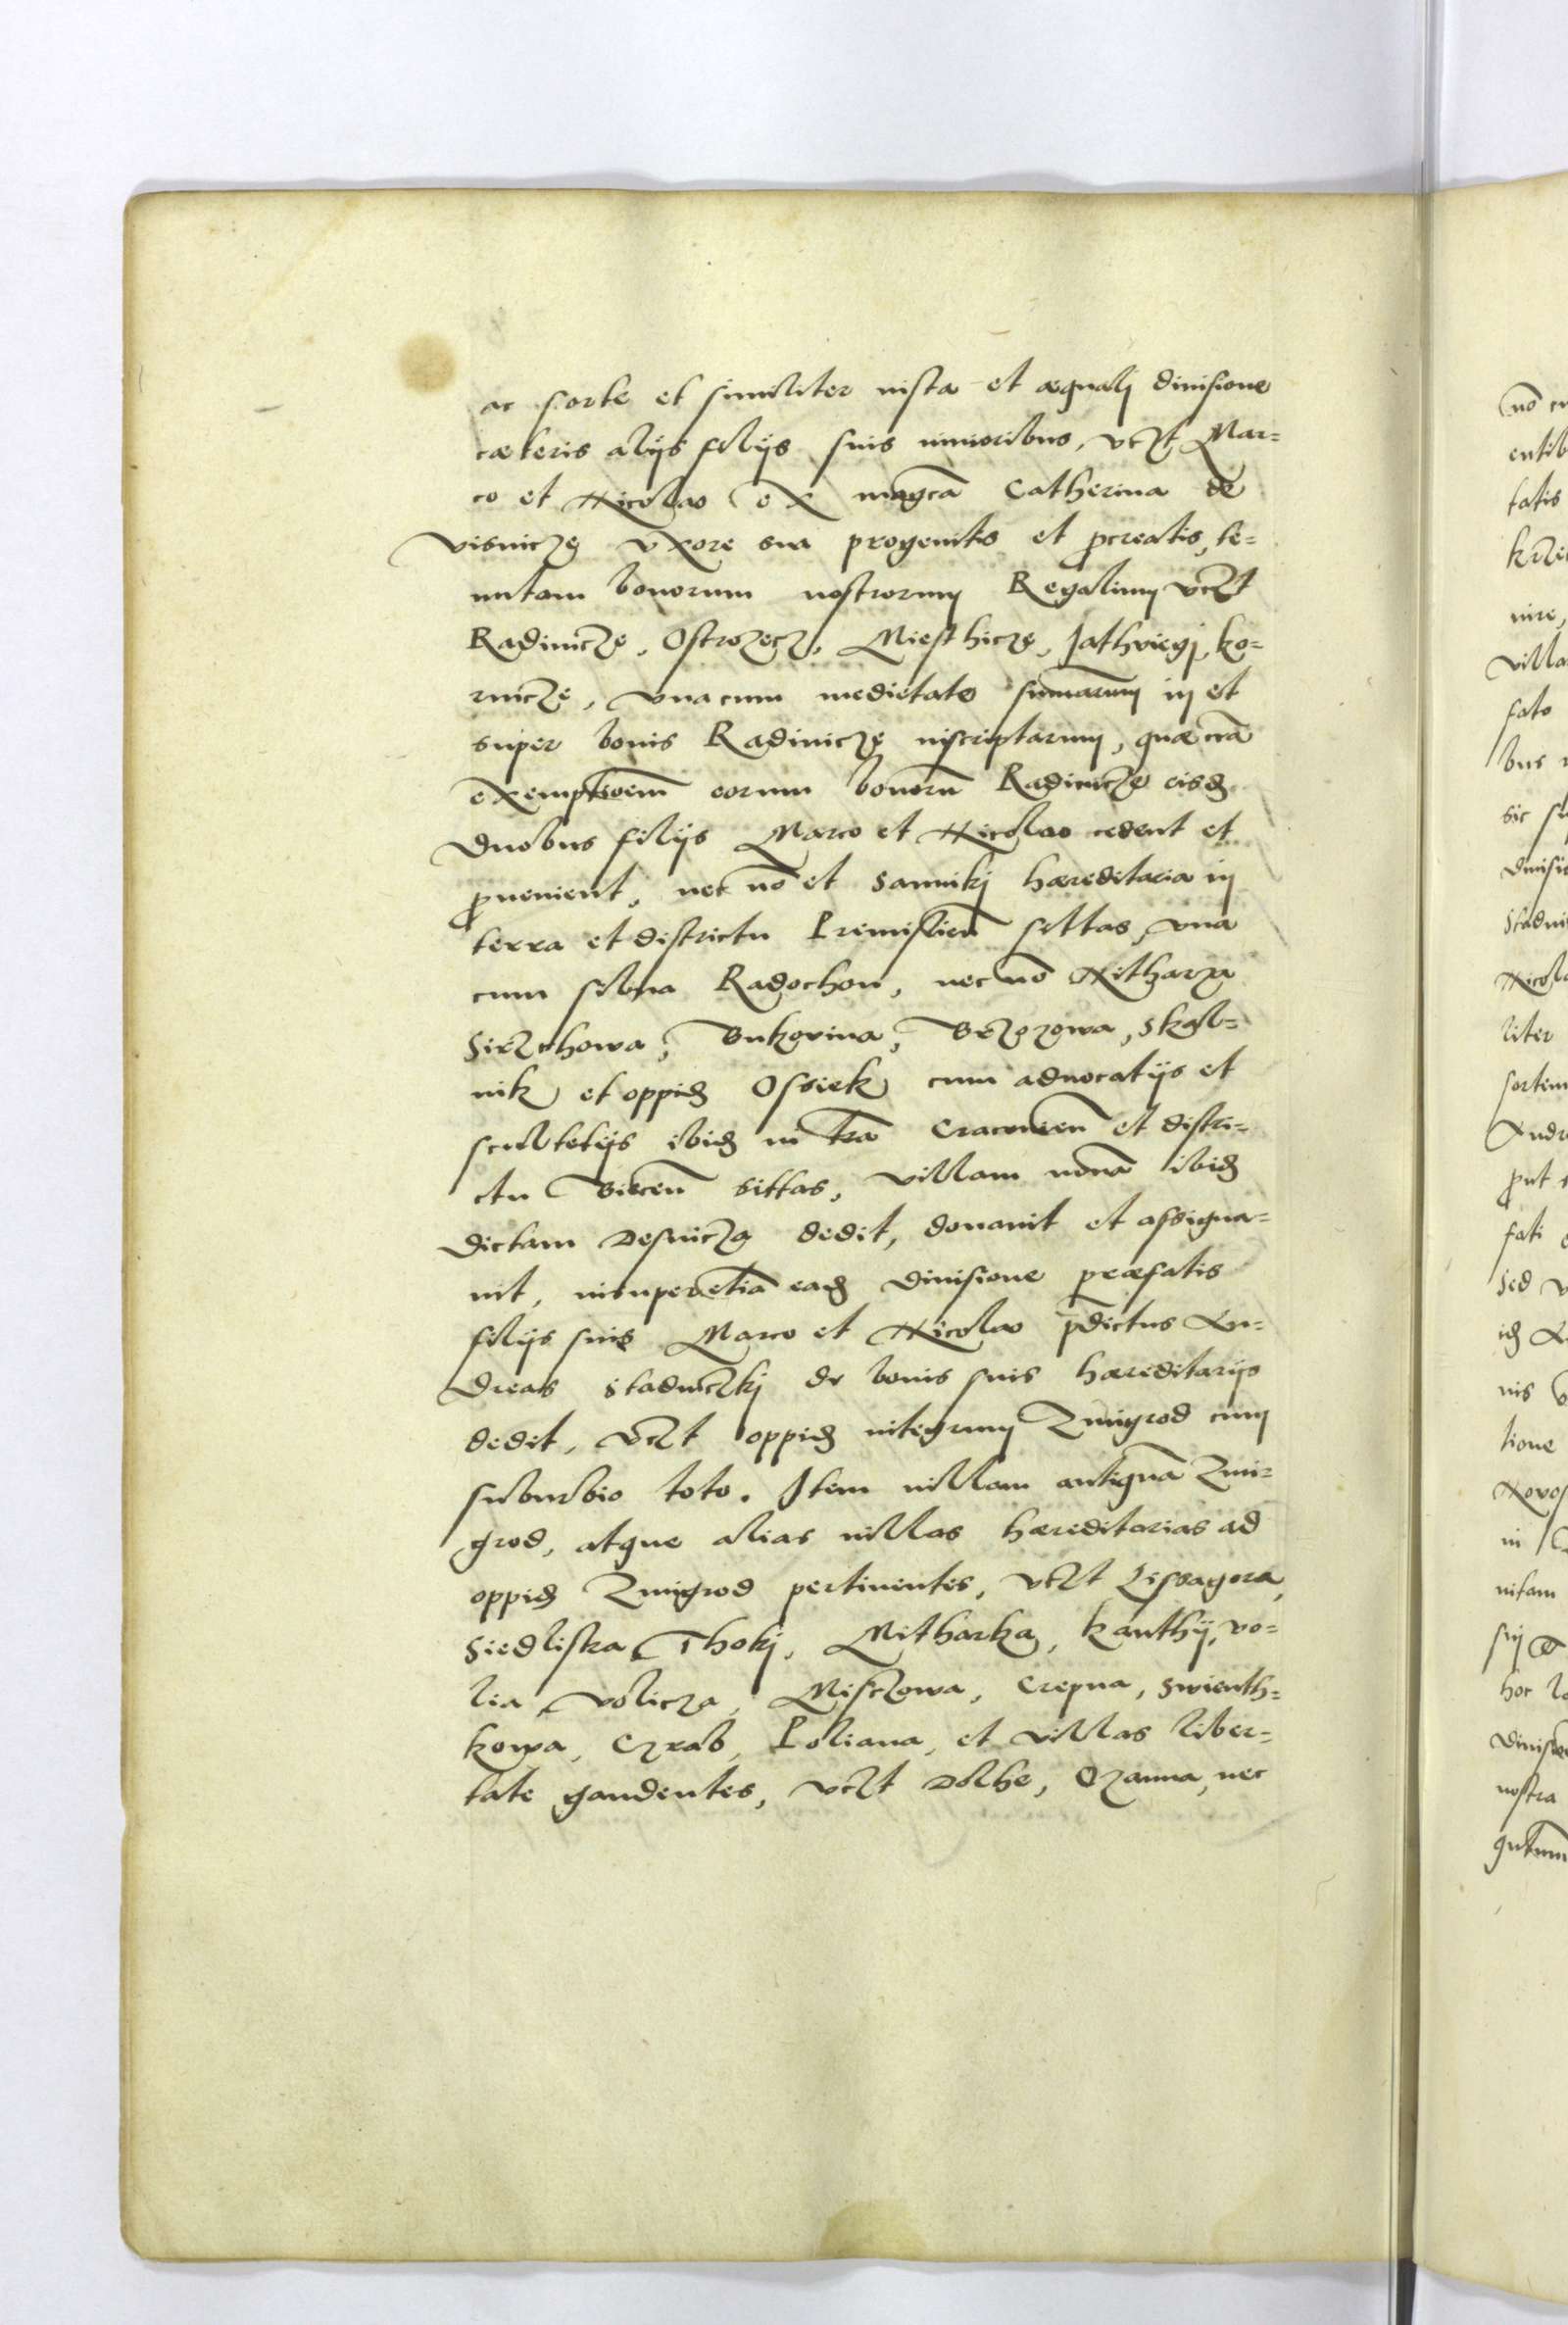 ac sorte et similiter iusta et æquali diuisione
cæteris alijs filijs suis iunioribus, vczt Mar=
co et Nicolao ex magca Catherina de
Visnicze vxore sua progenitis et pcreatis, te=
nutam bonorum nostrorum Regalium vczt
Radinicze, Ostrozecz, Miesthicze, Jathviegj, ko=
rnicze, vnacum medietate summarum in et
super bonis Radinicze inscriptarum, quæ circa
exemptioem eorum bonoru Radinicze eisd
duobus filijs Marco et Nicolao cedent et
puenient, nec no et Sannikj hæreditaria in
terra et districtu Premislien sittas, vna
cum silua Radochon, nec no
Sieczchowa, Bukovina, Brzozowa, Skal=
nik et oppid Ossiek cum aduocatijs et
scultetijs ibid in tra Cracouien et distri=
ctu Biecen sittas, villam noua ibid
dictam Desnicza dedit, donauit et assigna=
uit, insuper etia ead diuisione præfatis
filijs suis Marco et Nicolao pdictus An=
dreas Stadniczkj de bonis suis hæreditarijs
dedit, vczt oppid integrum Zmigrod cum
suburbio toto. Item uillam antiqua Zmi=
grod, atque alias uillas hæreditarias ad
oppid Zmigrod pertinentes, vczt Lissagora,
Siedliska, Thokj, Mitharka, kanthij, vo=
lia, volicza, Misczowa, Crepna, Swienth=
kowa, Czrab, Poliana, et villas liber=
tate gaudentes, vczt Dolhe, Ozanna, nec